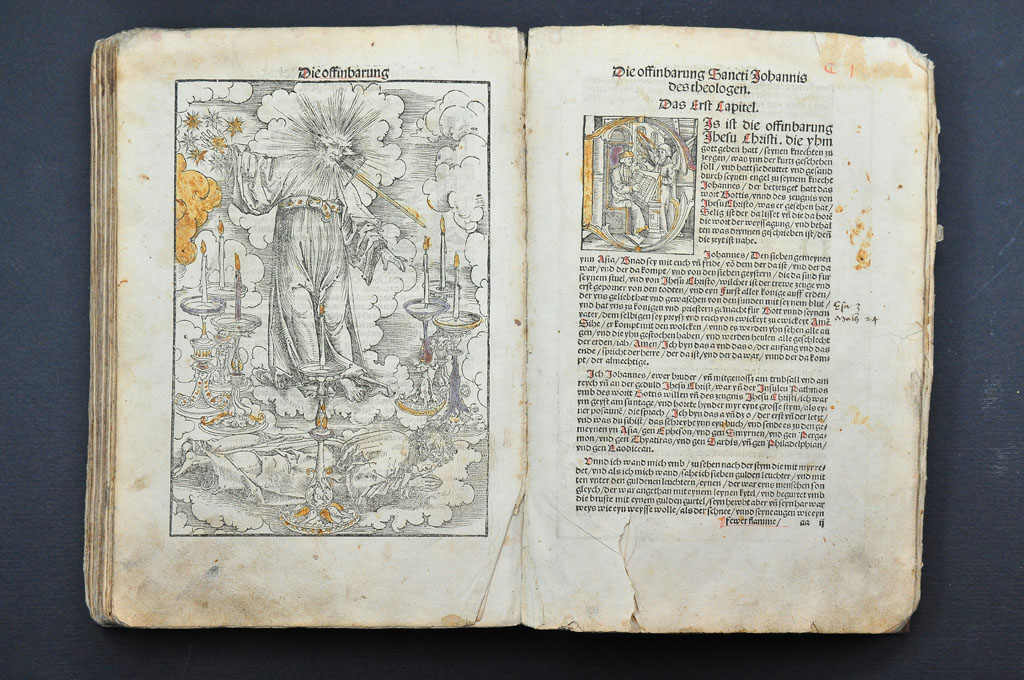 Die offinbarung
Die offinbarung Sancti Johannis
des theologen.
Das Erst Capitel.
Is ist die offinbarung
Jhesu Christi. die yhm
gott geben hatt / seynen knechten zu
zeygen / was ynn der kurtz geschehen
soll / vnd hatt sie deuttet vnd gesand
durch seynen engel zu seynem knecht
Johannes / der betzeuget hatt das
wort Gottis / vnnd des zeugnis von
Jhesu Christo / was er gesehen hat /
Selig ist der da lisset vñ die da horē
die wort der weyssagung / vnd behal
ten was drynnen geschrieben ist / deñ
die zeyt ist nahe.
Johannes / Den sieben gemeynen
ynn Asia / Gnad sey mit euch vñ fride / vō dem der da ist / vnd der da
war / vnd der da kompt / vnd von den sieben geystern / die da sind fur
seynem stuel / vnd von Jhesu Christo / wilcher ist der trewe zeuge vnd
erst geporner von den todten / vnd eyn Furst aller konige auff erden /
der vns geliebt hat vnd gewaschen von den sunden mit seynem blut /
vnd hat vns zu konigen vnd priestern gemacht fur Gott vnnd seynem
vater / dem selbigen sey preyss vnd reych von ewickeyt zu ewickeyt Amē
Sihe / er kompt mit den wolcken / vnnd es werden yhn sehen alle au
gen / vnd die yhn gestochen haben / vnd werden heulen alle geschlecht
der erden / jah / Amen / Jch byn das a vnd das o / der anfang vnd das
ende / spricht der herre / der da ist / vnd der da war / vnnd der da kom-
pt / der almechtige.
Jch Johannes / ewer bruder / vñ mitgenoss am trubsall vnd am
reych vñ an der gedult Jhesu Christ / war yñ der Jnsulen Pathmos
vmb des wortt Gottis willen vñ des zeugnis Jhesu Christi / ich war
ym geyst am suntage / vnd horete hynder myr eyne grosse stym / als ey-
ner posaunē / die sprach / Jch byn das a vñ dz o / der erst vñ der letzt /
vnd was du sihist / das schreybe ynn eyn buch / vnd sende es zu den ge-
meynen yn Asia / gen Epheson / vnd gen Smyrnen / vnd gen Perga-
mon / vnd gen Thyatiras / vnd gen Sardis / vñ gen Philadelphian /
vnd gen Laodicean.
Vnnd ich wand mich vmb / zu sehen nach der stym die mit myr re-
det / vnd als ich mich wand / sahe ich sieben gulden leuchter / vnd mit-
ten vnter den guldenen leuchtern / eynen / der war eyns menschen son
gleych / der war angethan mit eynem leynen kytel / vnd begurtet vmb
die brusst mit eynem gulden gurtel / seyn hewbt aber vñ seyn har war
weys wie eyn weysse wolle / als der schnee / vnnd seyne augen wie eyn
fewer flamme / aa ij